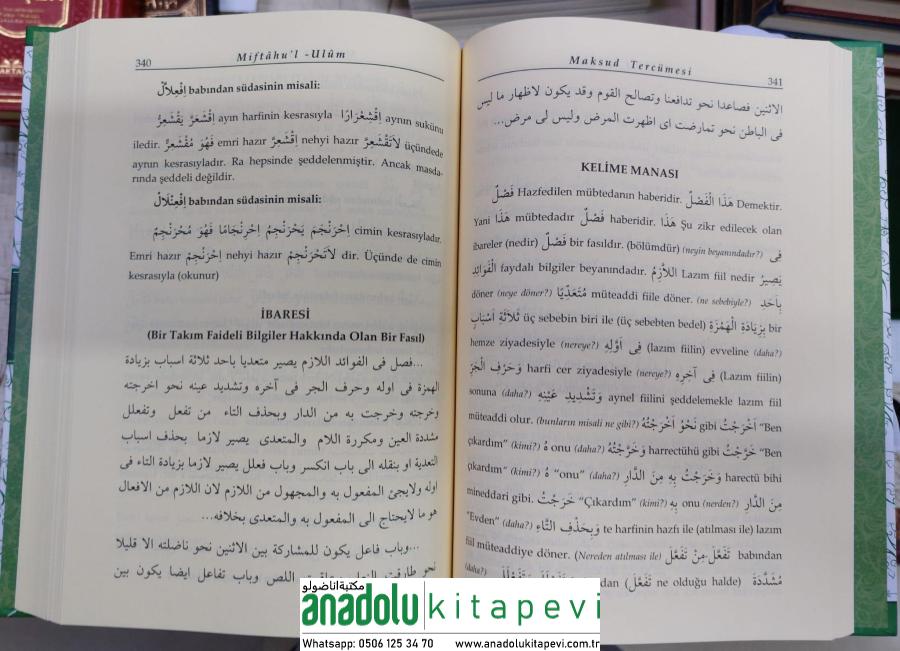 340 Miftâhu'l -Ulûm
اِفْعِلاَّلٌ babından südasinin misali:
اِقْشَعَرَّ يَقْشَعِرُّ ayın harfinin kesrasıyla اِقْشِعْرَارًا aynın sukünu
iledir. فَهُوَ مُقْشَعِرٌّ emri hazır اِقْشَعِرَّ nehyi hazır لاَتَقْشَعِرَّ üçündede
aynın kesrasıyladır. Ra hepsinde şeddelenmiştir. Ancak masda-
rında şeddeli değildir.
اِفْعِنْلَالٌ babından südasinin misali:
اِحْرَنْجَمَ يَحْرَنْجِمُ اِحْرِنْجَامًا فَهُوَ مُحْرَنْجِمٌ cimin kesrasıyladır.
Emri hazır اِحْرَنْجِمْ nehyi hazır لاَتَحْرَنْجِمْ dir. Üçünde de cimin
kesrasıyla (okunur)
İBARESİ
(Bir Takım Faideli Bilgiler Hakkında Olan Bir Fasıl)
...فصل فى الفوائد اللازم يصير متعديا باحد ثلاثة اسباب بزيادة
الهمزة فى اوله وحرف الجر فى آخره وتشديد عينه نحو اخرجته
وخرجته وخرجت به من الدار وبحذف التاء من تفعل وتفعلل
مشددة العين ومكررة اللام والمتعدى يصير لازما بحذف اسباب
التعدية او بنقله الى باب انكسر وباب فعلل يصير لازما بزيادة التاء فى
اوله ولايجئ المفعول به والمجهول من اللازم لان اللازم من الافعال
هو ما لايحتاج الى المفعول به والمتعدى بخلافه...
...وباب فاعل يكون للمشاركة بين الاثنين نحو ناضلته الا قليلا
نحو طارقت اللص وباب تفاعل ايضا يكون بين
Maksud Tercümesi 341
الاثنين فصاعدا نحو تدافعنا وتصالح القوم وقد يكون لاظهار ما ليس
فى الباطن نحو تمارضت اى اظهرت المرض وليس لى مرض...
KELİME MANASI
فَصْلٌ Hazfedilen mübtedanın haberidir. هَذَا الْفَصْلُ Demektir.
Yani هَذَا mübtedadır فَصْلٌ haberidir. هَذَا Şu zikr edilecek olan
ibareler (nedir) فَصْلٌ bir fasıldır. (bölümdür) (neyin beyanındadır?) فِى
الْفَوَائِدِ faydalı bilgiler beyanındadır. اَللاَّزِمُ Lazım fiil nedir يَصِيرُ
döner (neye döner?) مُتَعَدِّيًا müteaddi fiile döner. (ne sebebiyle?) بِاَحَدِ
ثَلاَثَةِ اَسْبَابٍ üç sebebin biri ile (üç sebebten bedel) بِزِيَادَةِ الْهَمْزَةِ bir
hemze ziyadesiyle (nereye?) فِى اَوَّلِهِ (lazım fiilin) evveline (daha?)
وَحَرْفِ الْجَرِّ harfi cer ziyadesiyle (nereye?) فِى آخِرِهِ (Lazım fiilin)
sonuna (daha?) وَتَشْدِيدِ عَيْنِهِ aynel fiilini şeddelemekle lazım fiil
müteaddi olur. (bunların misali ne gibi?) نَحْوُ اَخْرَجْتُهُ gibi اَخْرَجْتُ "Ben
çıkardım" (kimi?) هُ onu (daha?) وَخَرَّجْتُهُ harrectühü gibi خَرَّجْتُ "Ben
çıkardım" (kimi?) هُ "onu" (daha?) وَخَرَجْتُ بِهِ مِنَ الدَّارِ harectü bihi
mineddari gibi. خَرَجْتُ "Çıkardım" (kimi?) بِهِ onu (nerden?) مِنَ الدَّارِ
"Evden" (daha?) وَبِحَذْفِ التَّاءِ te harfinin hazfi ile (atılması ile) lazım
fiil müteaddiye döner. (Nereden atılması ile) مِنْ تَفَعَّلَ-تَفَعَّلَ babından
(daha?) dan (تَفَعَّلَ ne olduğu halde) مُشَدَّدَةَ
مكتبة اناضولو
anadolu kitapevi
Whatsapp: 0506 125 34 70 www.anadolukitapevi.com.tr